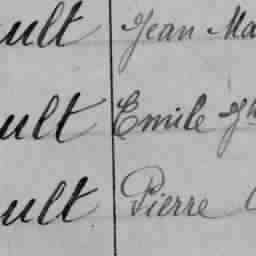 ult Jean Ma
ult Emile Jh
ult Pierre